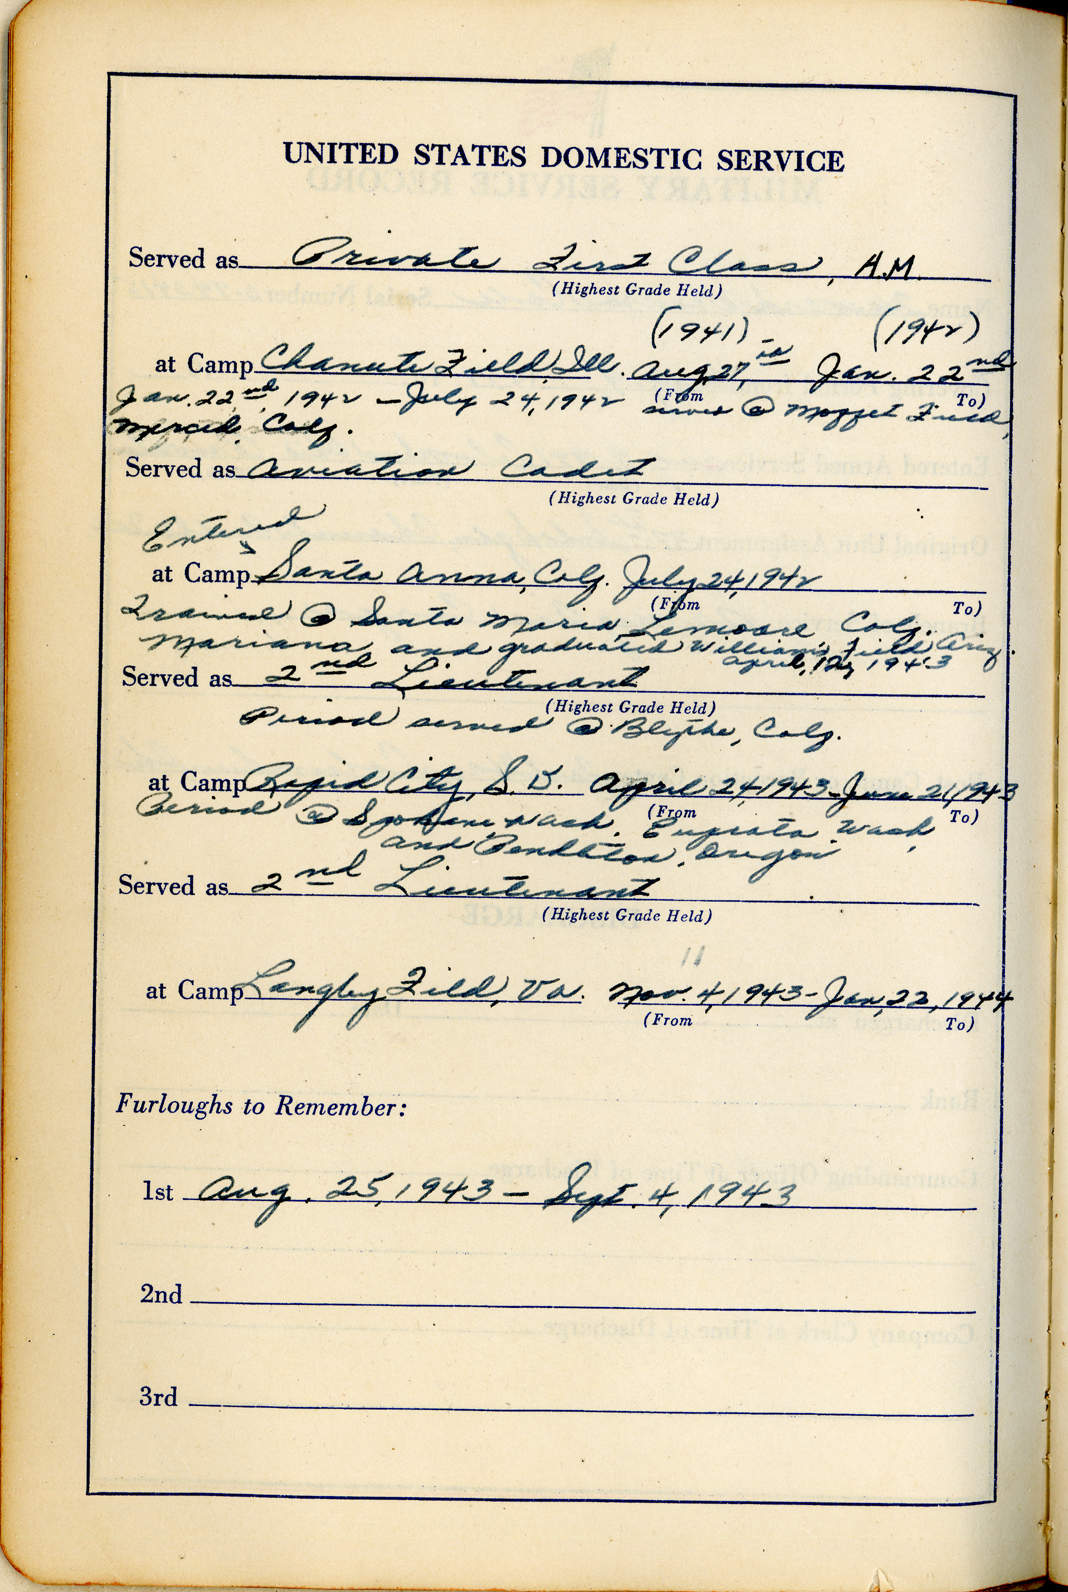 UNITED STATES DOMESTIC SERVICE
Served as Private First Class, A.M.
(Highest Grade Held)
(1941) - (1942)
at Camp Chanute Field, Ill. Aug. 27, Jan. 22nd
(From To)
Jan. 22nd, 1942 - July 24, 1942 served @ Moffet Field,
Merced, Calif.
Served as Aviation Cadet
(Highest Grade Held)
Entered
at Camp Santa Anna, Calif. July 24, 1942
(From To)
Trained @ Santa Maria, Lemoore, Calif.
Mariana, and graduated Williams Field Ariz
April 12, 1943
Served as 2nd Lieutenant
(Highest Grade Held)
Period served @ Blythe, Calif.
at Camp Rapid City, S.D. April 24, 1943 - June 21, 1943
(From To)
Period @ Spokane, Wash. Euprata Wash,
and Pendleton, Oregon
Served as 2nd Lieutenant
(Highest Grade Held)
11
at Camp Langley Field, Va. Nov. 4, 1943 - Jan, 22, 1944
(From To)
Furloughs to Remember:
1st Aug. 25, 1943 - Sept. 4, 1943
2nd
3rd